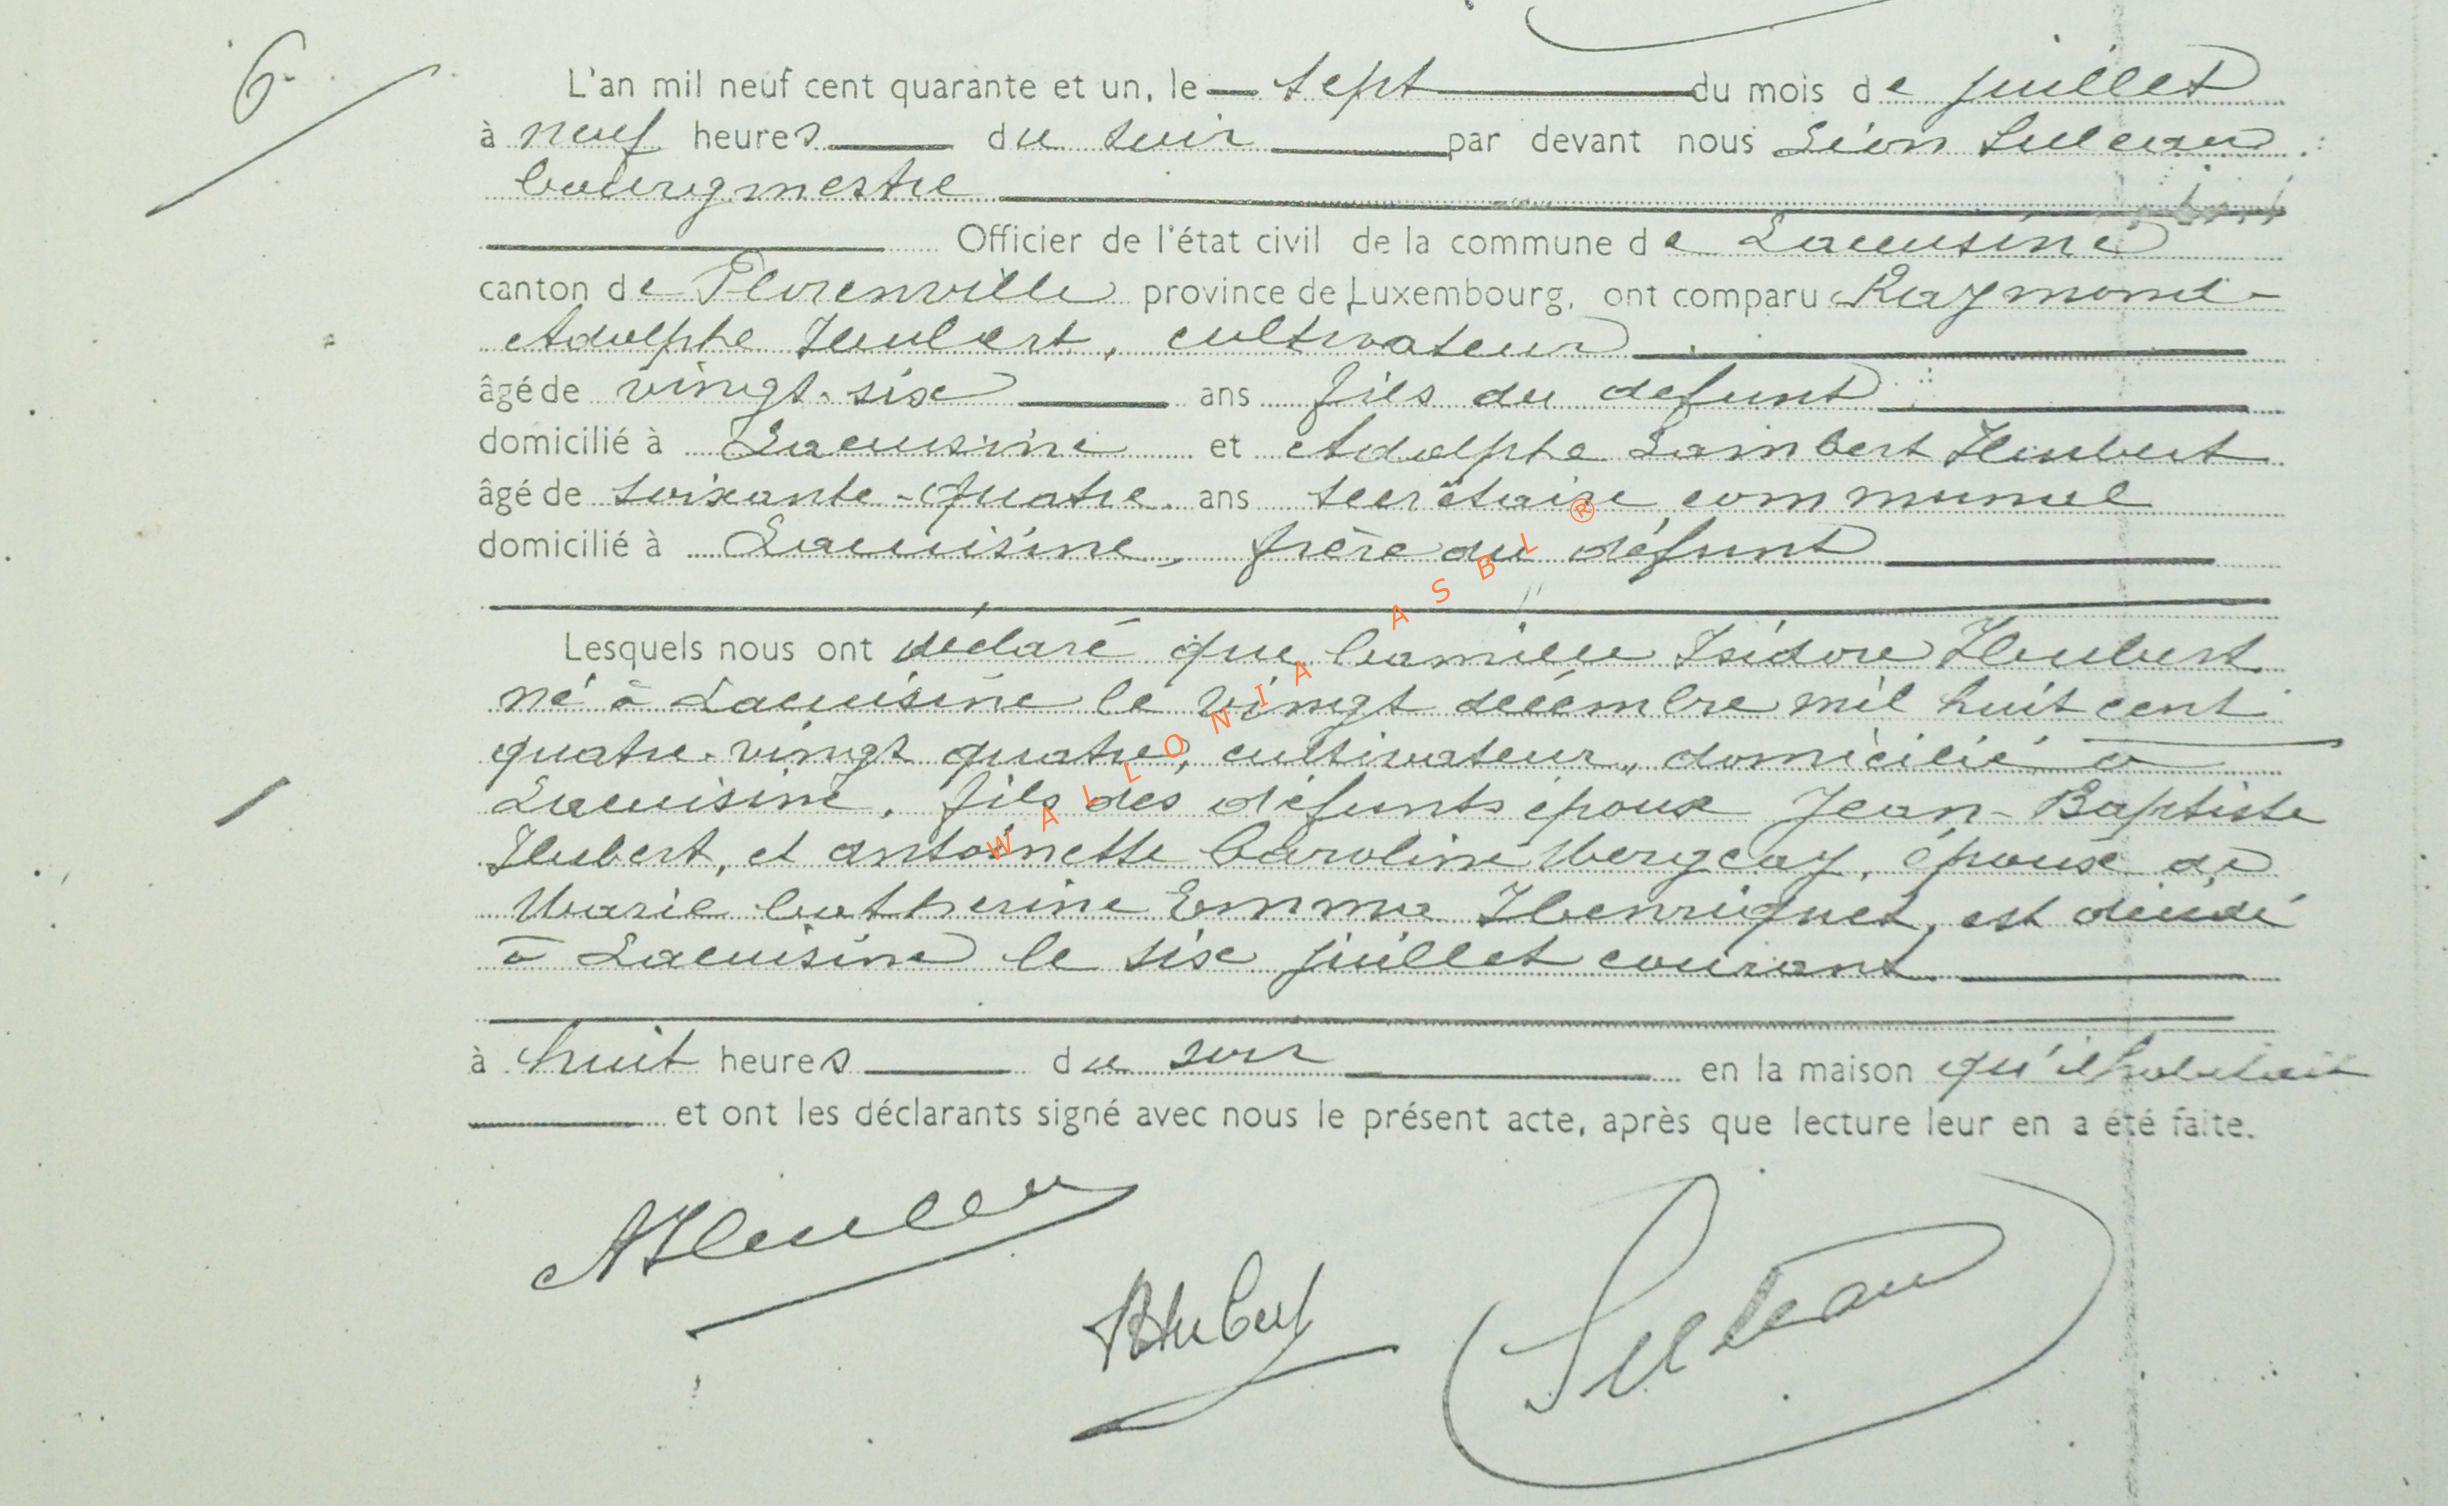 6.
L'an mil neuf cent quarante et un, le sept du mois de juillet
à neuf heures du soir par devant nous Léon Suleau
bourgmestre
Officier de l'état civil de la commune de Lacuisine
canton de Florenville province de Luxembourg, ont comparu Raymond
Adolphe Hubert, cultivateur
âgé de vingt-six ans fils du defunt
domicilié à Lacuisine et Adolphe Lambert Hubert
âgé de soixante-quatre ans secrétaire communal
domicilié à Lacuisine, frère du défunt
Lesquels nous ont déclaré que Camille Isidore Hubert
né à Lacuisine le vingt décembre mil huit cent
quatre-vingt quatre, cultivateur, domicilié à
Lacuisine, fils des défunts époux Jean-Baptiste
Hubert, et Antoinette Caroline Mergeay, époux de
Marie Catherine Emma Henriquet, est décédé
à Lacuisine le six juillet courant
à huit heures du soir en la maison qu'il habitait
et ont les déclarants signé avec nous le présent acte, après que lecture leur en a été faite.
AHubert
RHubert
Suleau
WALLONIA ASBL ®